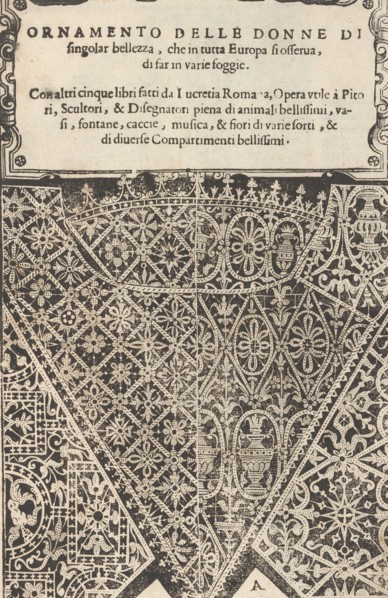 ORNAMENTO DELLE DONNE DI
singolar bellezza, che in tutta Europa si osserua,
di far in varie foggie.
Con altri cinque libri fatti da Lucretia Roma a, Opera vtile à Pito
ri, Scultori, & Disegnatori piena di animali bellissimi, va-
si, fontane, caccie, musica, & fiori di varie sorti, &
di diuerse Compartimenti bellissimi.
A